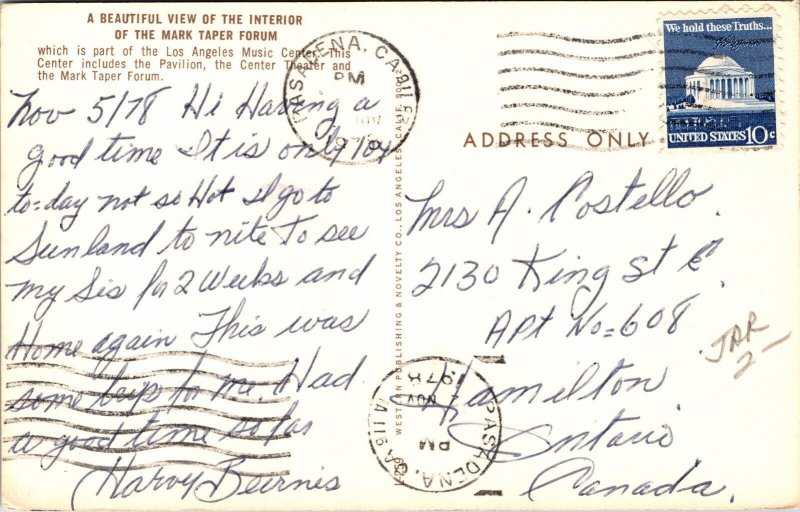 A BEAUTIFUL VIEW OF THE INTERIOR
OF THE MARK TAPER FORUM
which is part of the Los Angeles Music Center. This
Center includes the Pavilion, the Center Theater and
the Mark Taper Forum.
Nov 5/78 Hi Having a
good time It is only 104
to=day not so Hot I go to
Sunland to nite To see
my Sis for 2 Weeks and
Home again This was
some trip for me. Had
a good time so far
Harvy Beirnes
WESTERN PUBLISHING & NOVELTY CO., LOS ANGELES, CALIF. 90012
PASADENA, CA 911
PM
We hold these Truths...
UNITED STATES 10c
ADDRESS ONLY
Mrs A. Costello.
2130 King St E.
Apt No=608
Hamilton
Ontario
Canada.
JAR
2-
PASADENA, CA 911
PM
NOV
1978